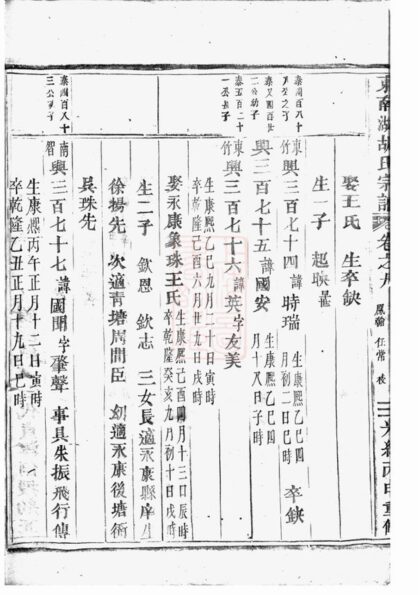 東南湖胡氏宗譜 卷之九 鳳翰 任常 校 三 光緒丙申重修
娶王氏 生卒缺
生一子 起映
東竹 興三百七十四 諱時瑞 生康熙乙巳四月初二日巳時 卒缺
興三百七十五 諱國安 生康熙乙巳四月十八日子時
竹 興三百七十六 諱英 字友美
生康熙乙巳九月三十日寅時
卒乾隆己酉六月廿九日戌時
娶永康象珠王氏 生康熙己酉四月十三日辰時 卒乾隆癸亥九月初十日戌時
生二子 欽恩 欽志 三女長適永康縣庠生
徐揚先 次適青塘周間臣 幼適永康後塘術
吳珠先
南智 興三百七十七 諱國開 字肇聲 事具朱振飛行傳
生康熙丙午正月十二日寅時
卒乾隆乙丑正月十九日巳時